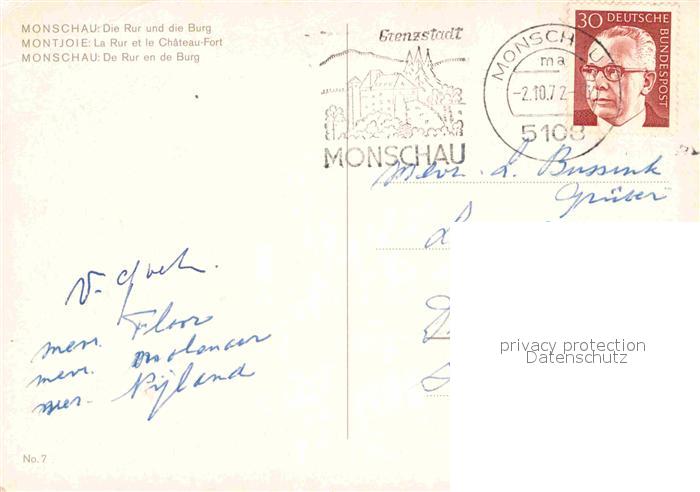 MONSCHAU: Die Rur und die Burg
MONTJOIE: La Rur et le Château-Fort
MONSCHAU: De Rur en de Burg
Grenzstadt
MONSCHAU
MONSCHAU
ma
-2.10.72-
5108
30 DEUTSCHE
BUNDESPOST
Mevr. L. Bussink
Grüber
privacy protection
Datenschutz
mevr. Floor
mevr. Molenaar
mevr. Nijland
No. 7